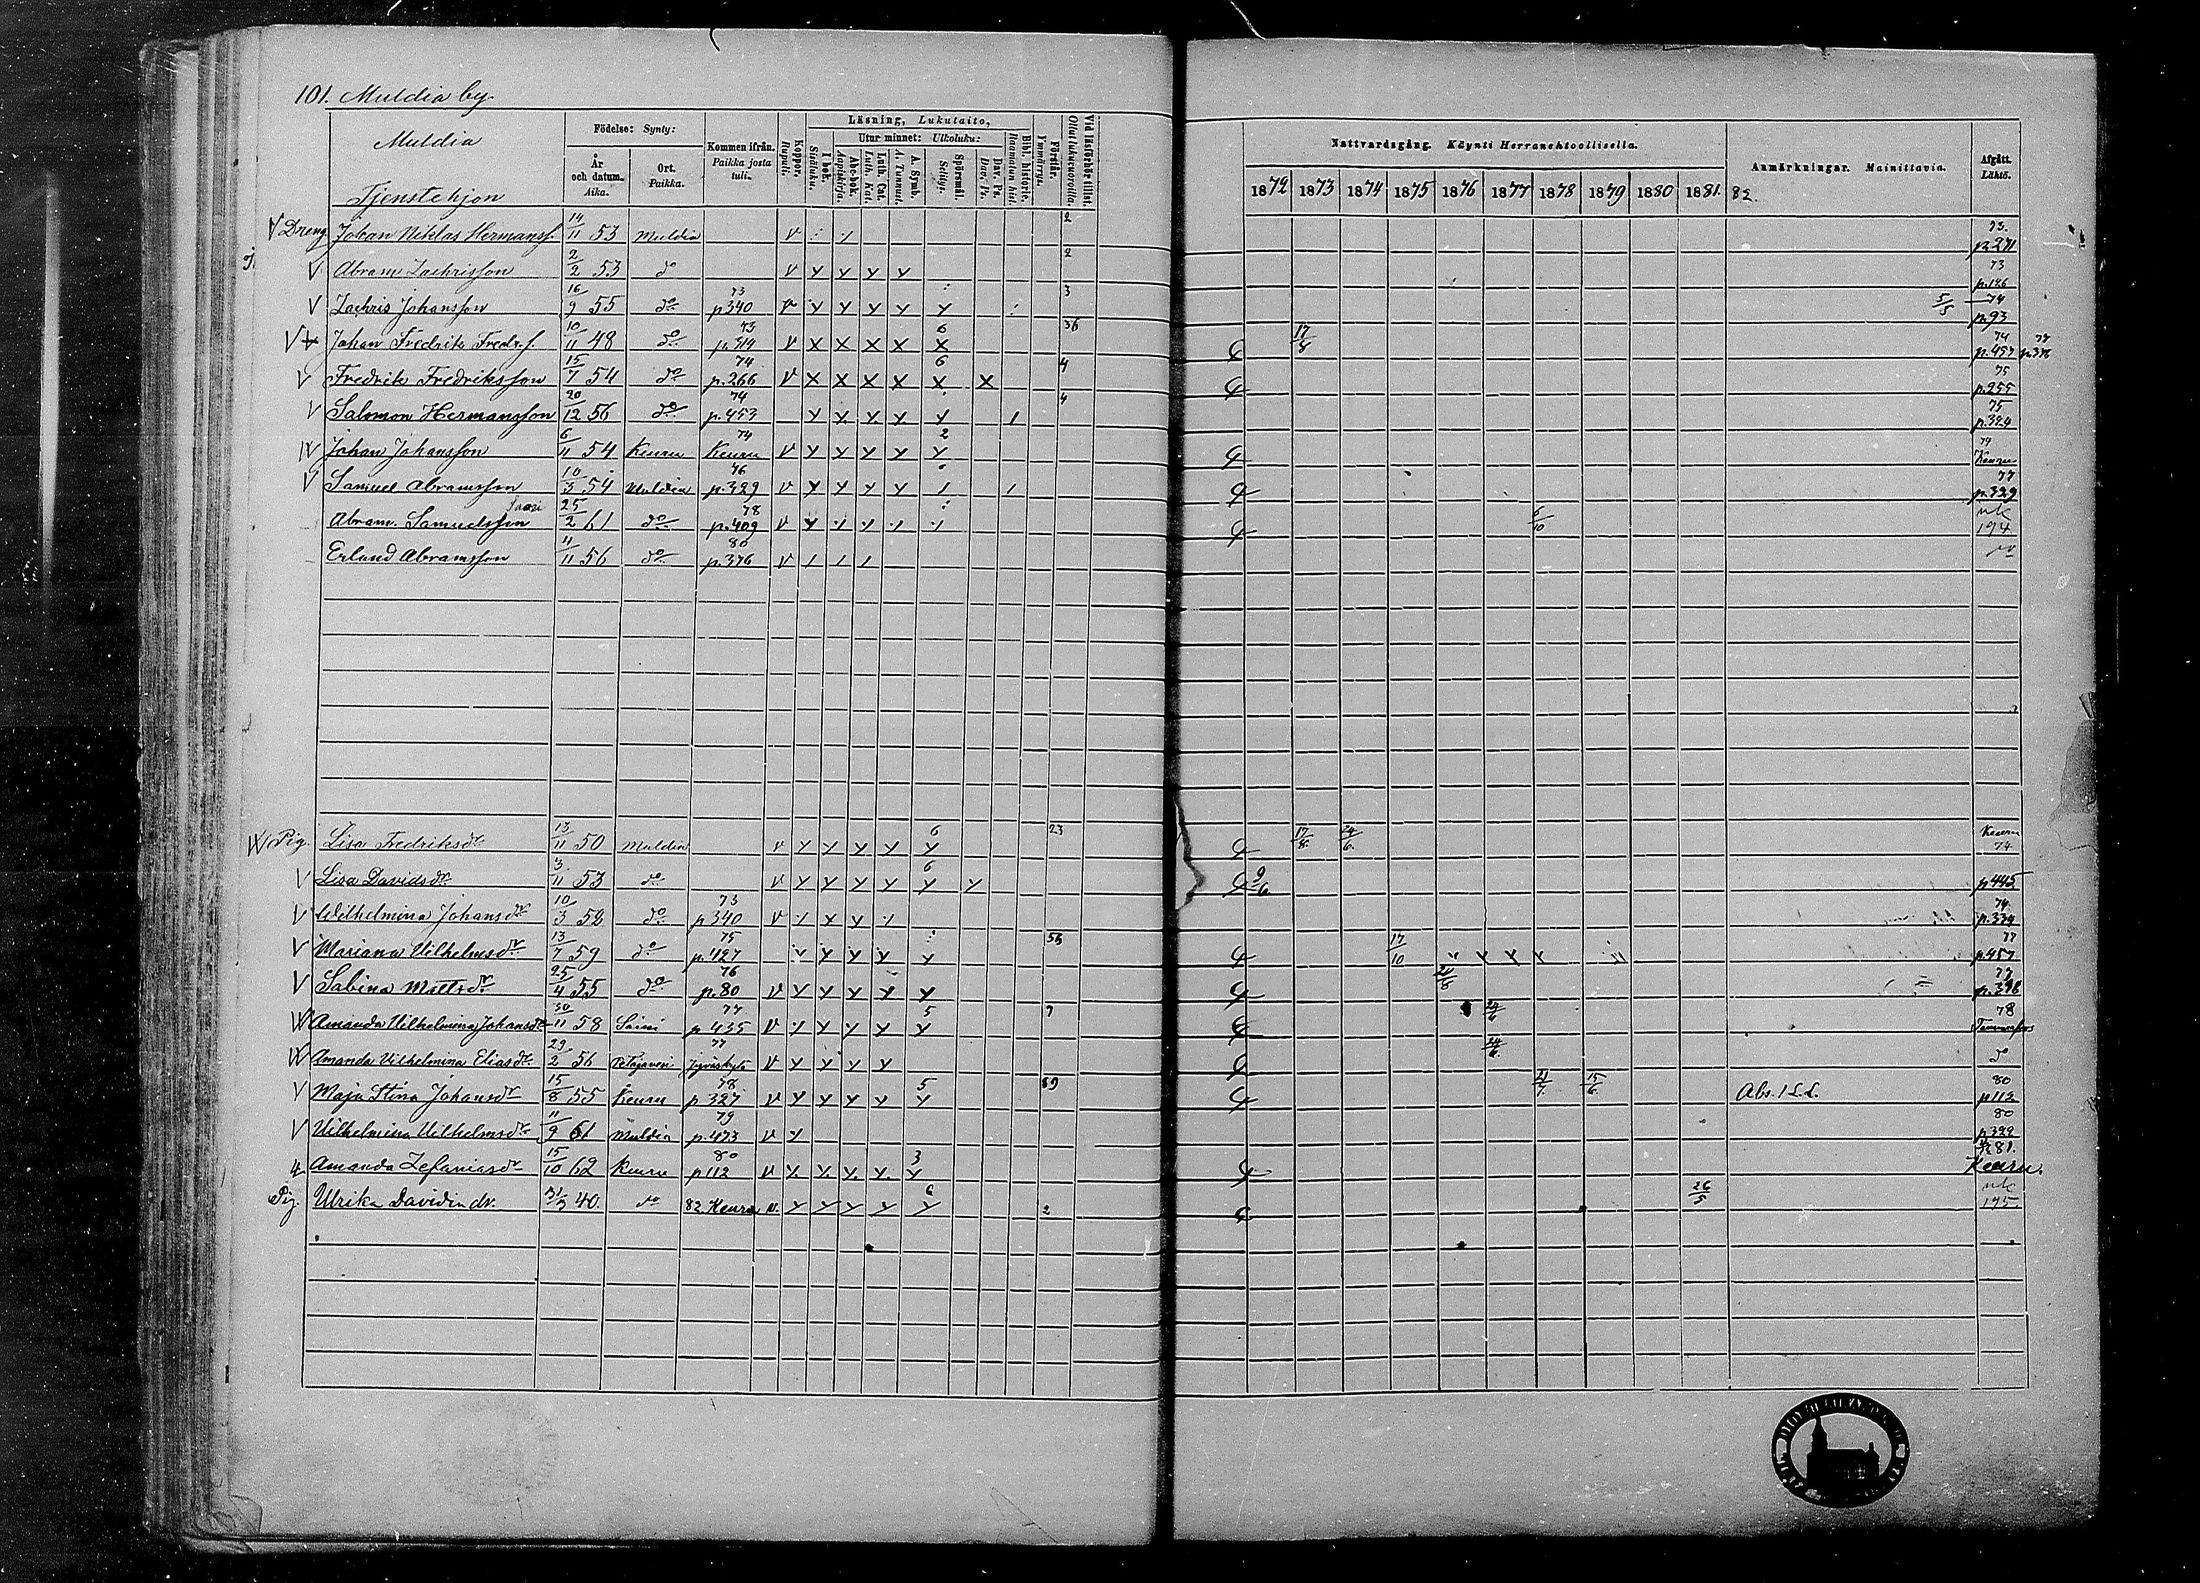 101. Muldia by.
Muldia
Tjenstehjon
Födelse: Synty:
År och datum. Aika.
Ort. Paikka.
Kommen ifrån. Paikka josta tuli.
Koppor. Rupuli.
Läsning, Lukutaito,
I bok. Sisäluku.
Utur minnet: Ulkoluku:
Abc-bok. Aapiskirja.
Luth. Cat. Luth. Kat.
A. Symb. A. Tunnust.
Spörsmål. Selitys.
Dav. Ps. Dav. Ps.
Bibl. historie. Raamatun hist.
Förstår. Ymmärrys.
Vid läsförhör tillst. Ollut lukuvuoroilla.
Nattvardsgång. Käynti Herranehtoollisella.
1872 1873 1874 1875 1876 1877 1878 1879 1880 1881. 82.
Anmärkningar. Mainittavia.
Afgått. Lähtö.
V Dreng Johan Niklas Hermanss. 14/11 53 Muldia V 2 73. p. 271
V Abram Zachrisson 2/2 53 do V y y y y 2 73 p. 126
V Zachris Johansson 16/9 55 do 73 p 340 V y y y y y 3 5/5 74 p. 93
V Johan Fredrik Fredr.s. 10/11 48 do 73 p. 414 V x x x x x 6 36 17/8 74 p. 457
V Fredrik Fredriksson 15/7 54 do 74 p. 266 V x x x x x 6 x 4 75 p. 255
V Salomon Hermansson 20/12 56 do 74 p. 453 y y y y y 1 4 75 p. 324
Johan Johansson 6/11 54 Keuru 74 Keuru V y y y y y 2 74 Keuru
V Samuel Abramsson 10/3 54 Muldia 76 p. 329 V y y y y 1 1 77 p. 329
Abram. Samuelsson 25/2 61 do 78 p. 409 V y 6/10 uk 194
Erland Abramsson 11/11 56 do 80 p. 376 V 1 1 1
Pig. Lisa Fredriksdr 13/11 50 Muldia V y y y y y 6 23 17/8 24/6 Keuru 74
V Lisa Davidsdr 3/11 53 do V y y y y y 6 y 9/6 p 445
V Wilhelmina Johansdr 10/3 52 do 73 p 340 V x y 74 p. 334
V Mariana Vilhelmsdr 13/7 59 do 75 p. 427 y y y y 55 17/10 77 p. 457
V Sabina Mattsdr 25/4 55 do 76 p. 80 V y y y y y 24/8 77 p. 398
Amanda Vilhelmina Johansdr 30/11 58 77 p 435 V y y y y y 5 7 24/6 78 Tammerfors
Amanda Vilhelmina Eliasdr 29/2 56 Petäjävesi 77 Jyväskylä V y y y y 24/6 do
V Maja Stina Johansdr 15/8 55 Keuru 78 p 327 V y y y y y 5 59 21/7 15/6 Abs. 1 L.L. 80 p 112
V Vilhelmina Vilhelmsdr 11/9 61 Muldia 79 p. 473 V y 80 p 322
Amanda Zefaniasdr 15/10 62 Keuru 80 p 112 V y y y y y 3 81. Keuru.
Pig. Ulrika Davidin dr. 31/3 40. do 82 Keuru v. y y y y y 6 2 26/5 uk 195.